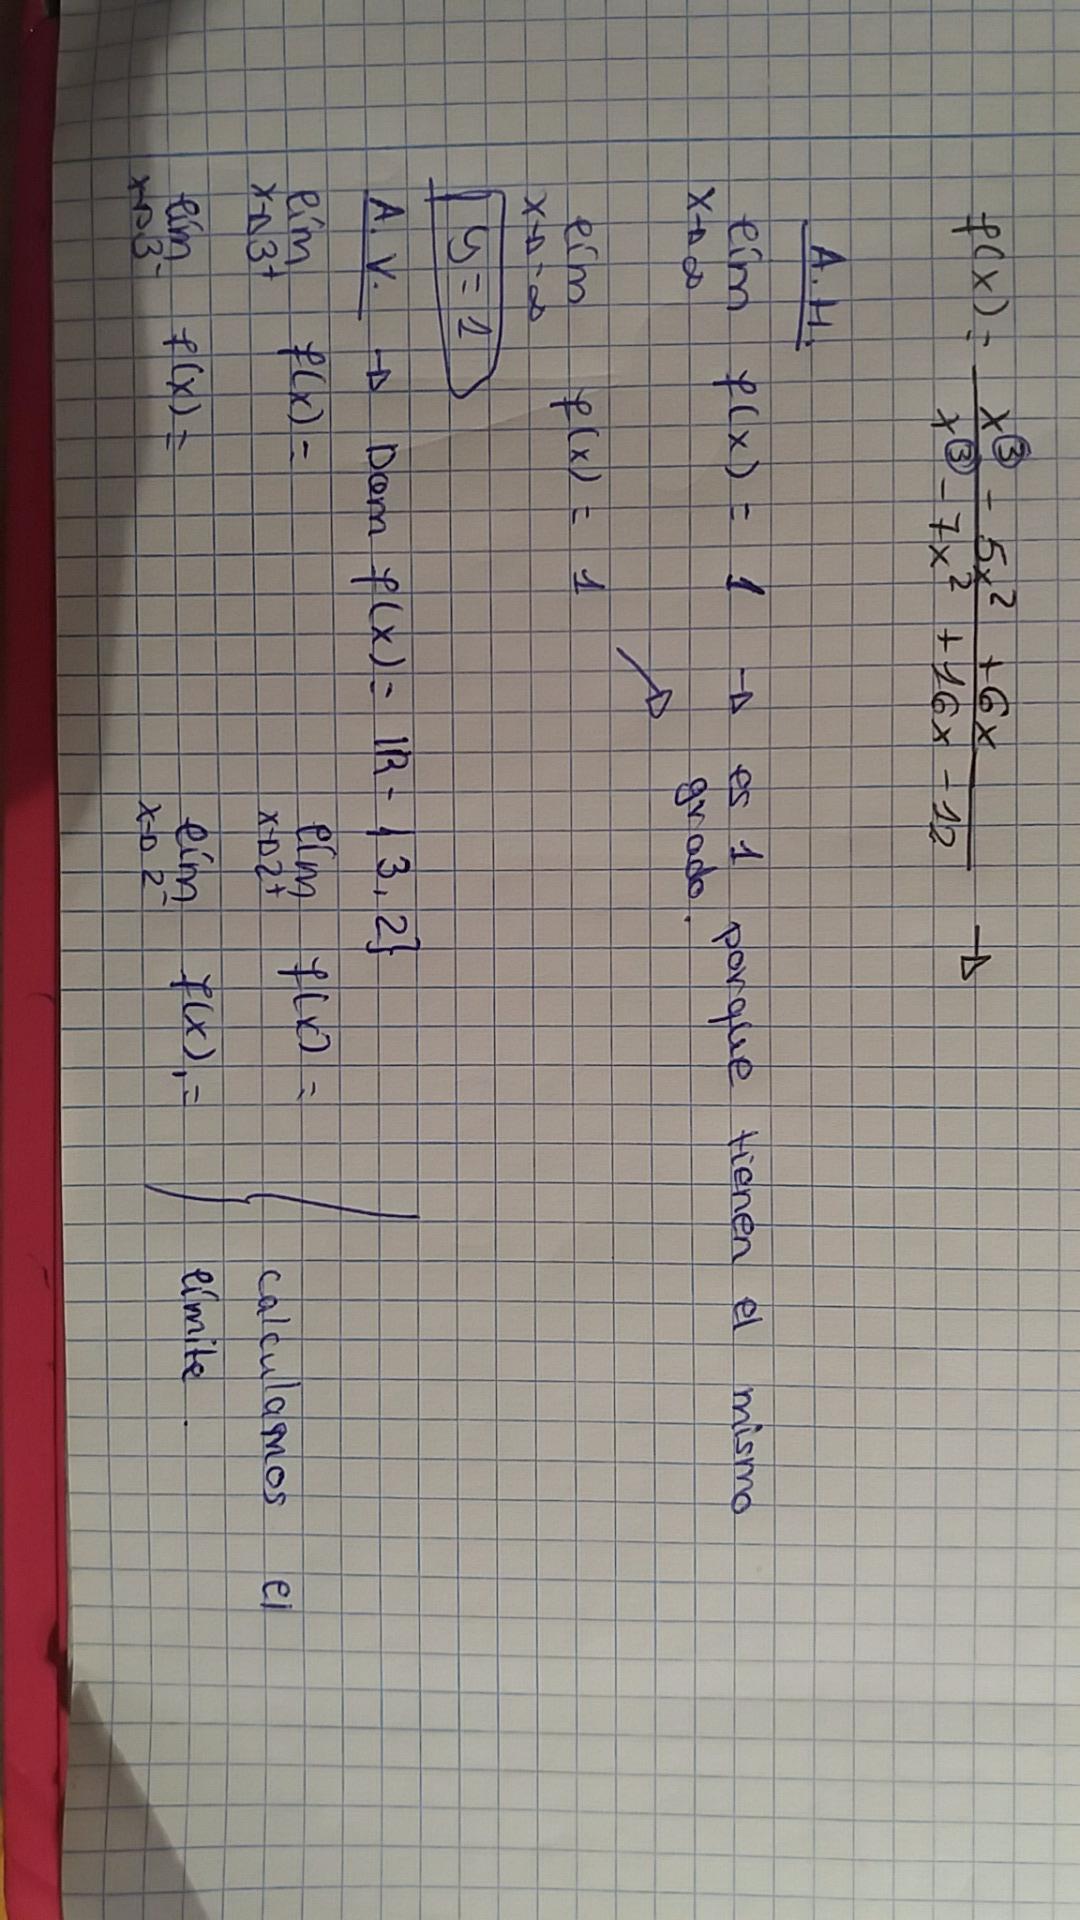 f(x) = x³ - 5x² + 6x / x³ - 7x² + 16x - 12 →
A.H.
lím x→∞ f(x) = 1 → es 1 porque tienen el mismo
grado.
lím x→-∞ f(x) = 1
y = 1
A.V. → Dom f(x) = ℝ - {3, 2}
lím x→3⁺ f(x) = lím x→2⁺ f(x) = calculamos el
lím x→3⁻ f(x) = lím x→2⁻ f(x) = límite.